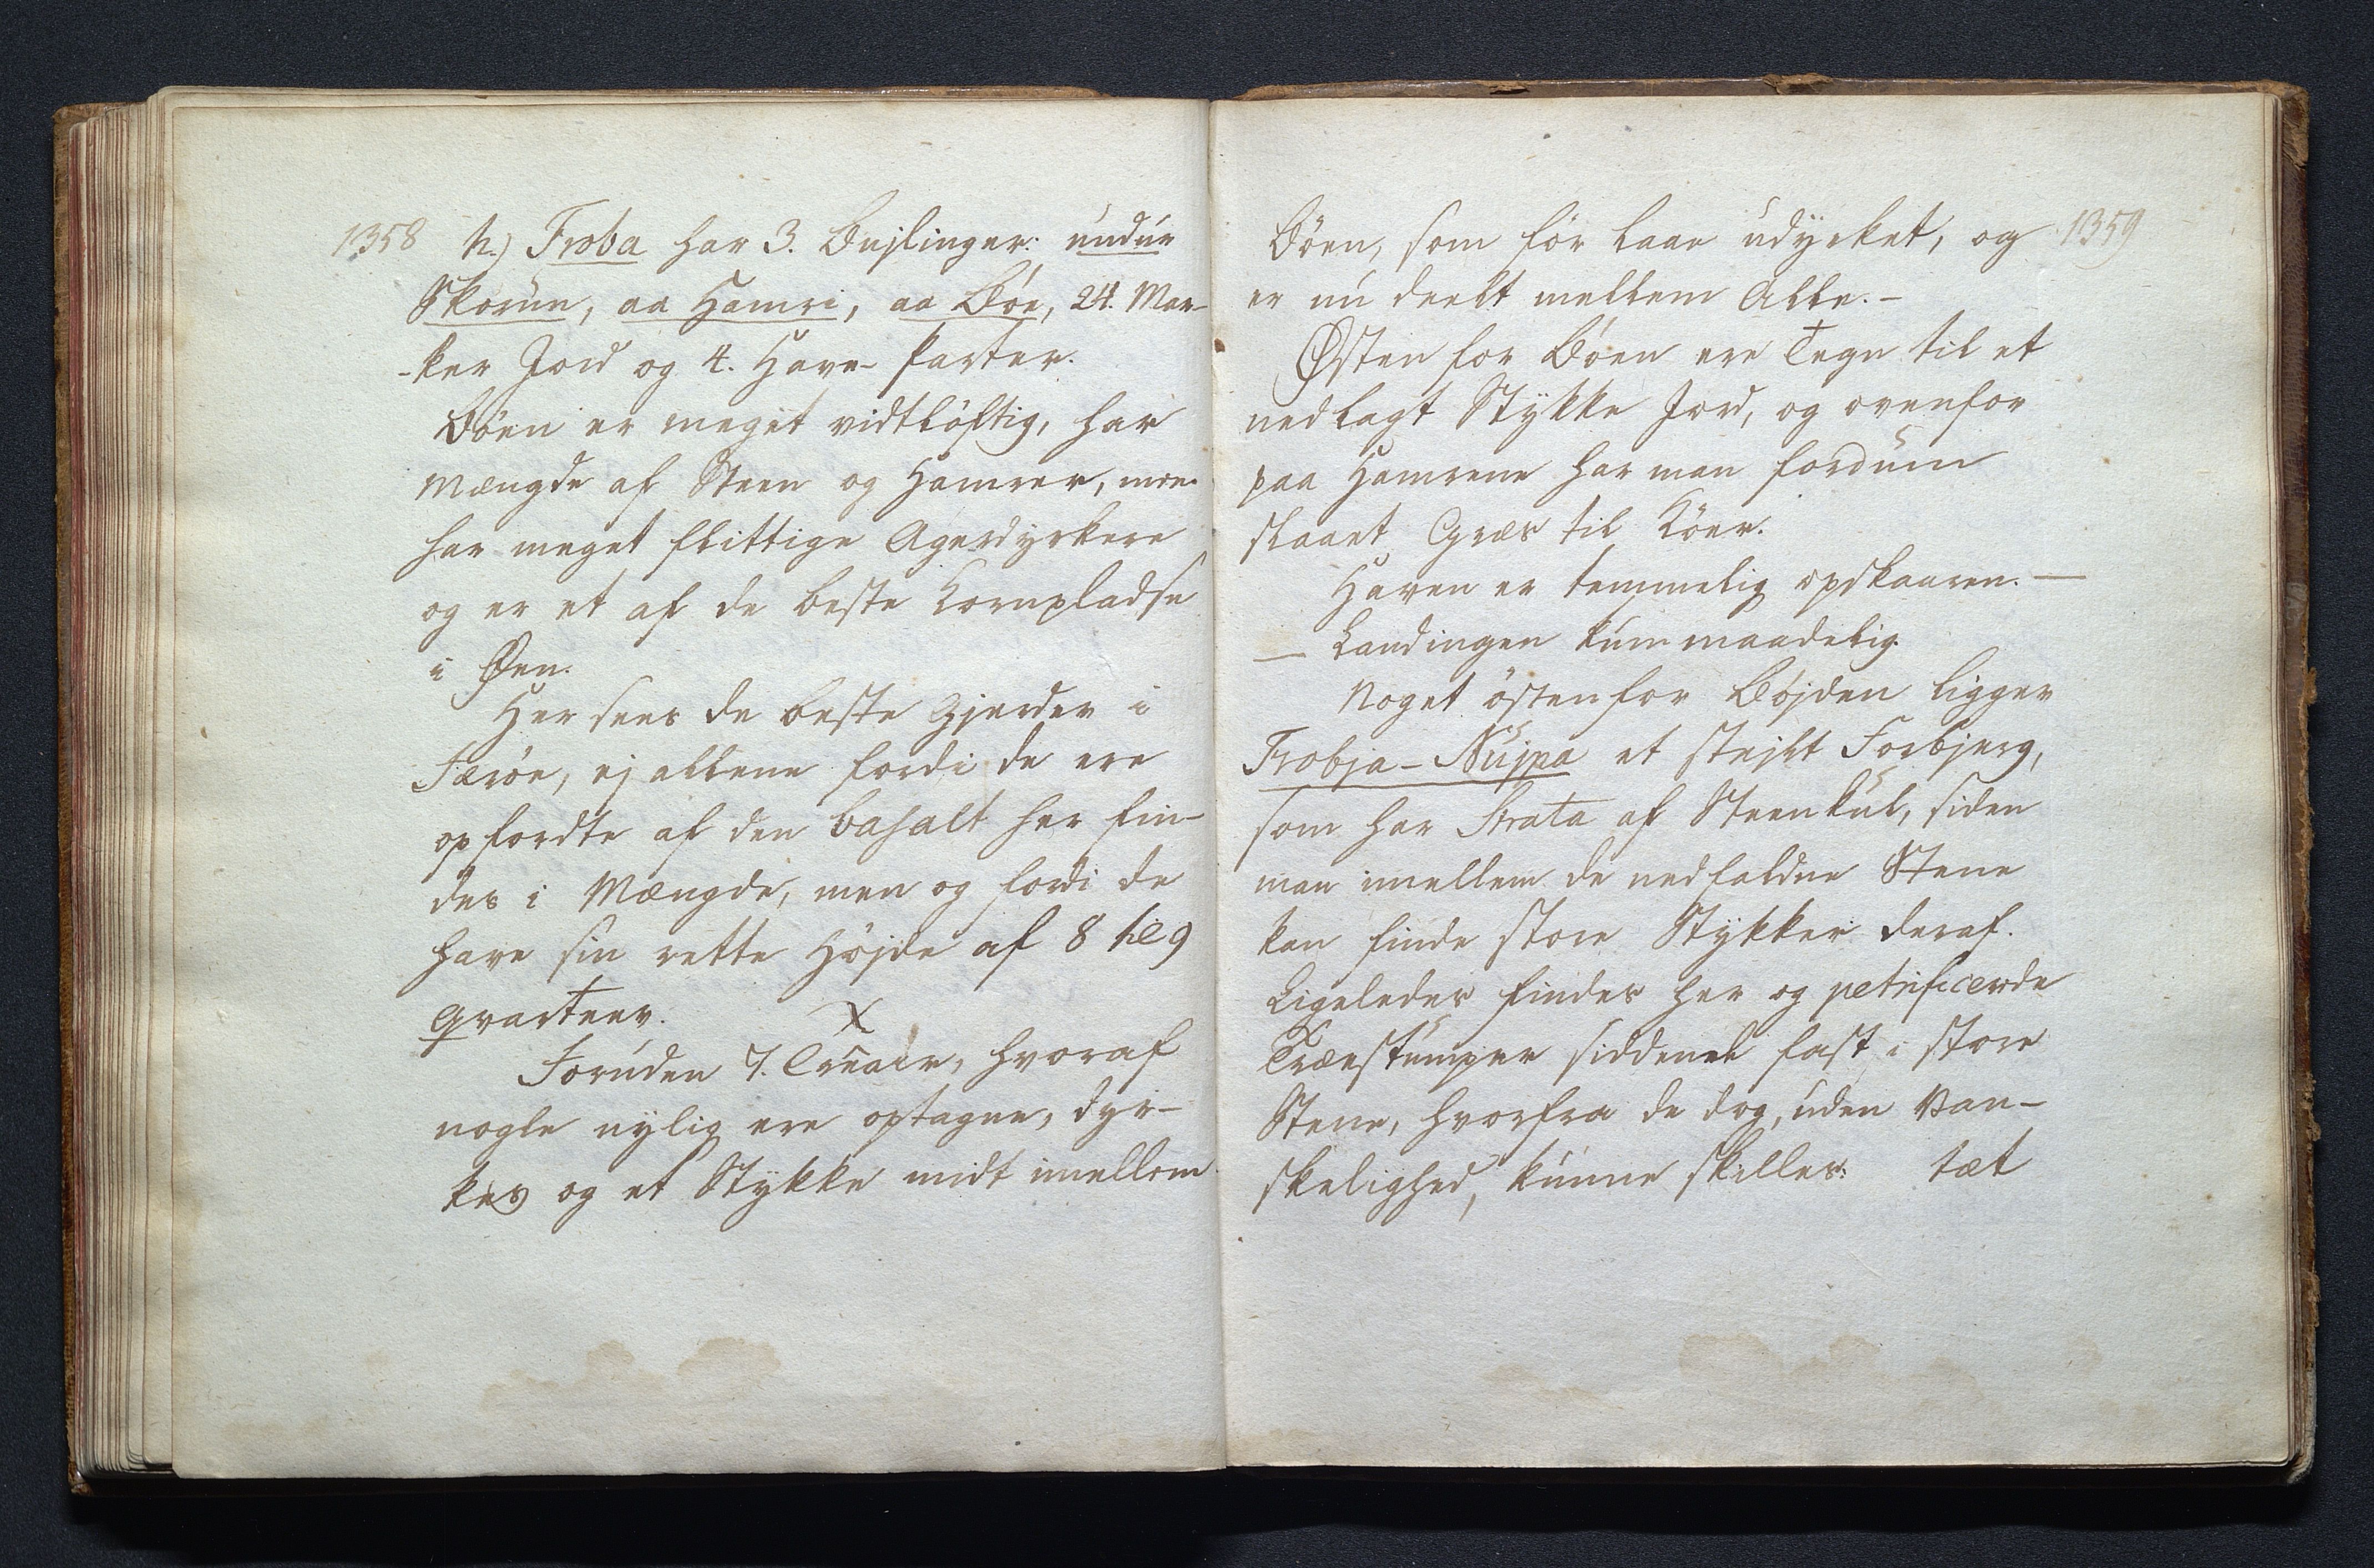 1358 h.) Froba har 3. Bujlinger: undur
Skorun, aa Hamri, aa Bøe, 24. Mar-
-ker Jord og 4. Have-Parter.
Bøen er meget vidtløftig, har
Mængde af Steen og Hamrer, men
har meget flittige Agerdyrkere
og er et af de beste Kornpladse
i Øen.
Her sees de beste Gjerder i
Færøe, ej allene fordi de ere
opfordte af den basalt her fin-
des i Mængde, men og fordi de
have sin rette Højde af 8 til 9
Qvarteer.
Foruden 7. Truair, hvoraf
nogle nylig ere optagne, dyr-
kes og et Stykke midt imellem
Bøen, som før laae udyrket, og 1359
er nu deelt mellem Alle.-
Østen for Bøen ere Tegn til et
nedlagt Stykke Jord, og ovenfor
paa Hamrene har man fordum
slaaet Græs til Køer.
Haven er temmelig opskaaren. -
- Landingen kum maadelig.
Noget østenfor Bøjden ligger
Frobja-Nujpa et stejlt Forbjerg,
som har Strata af Steenkul, siden
man imellem de nedfaldne Stene
kan finde store Stykker deraf.
Ligeledes findes her og petrificerde
Træestumper siddende fast i store
Stene, hvorfra de dog, uden Van-
skelighed, kunne skilles: tæt